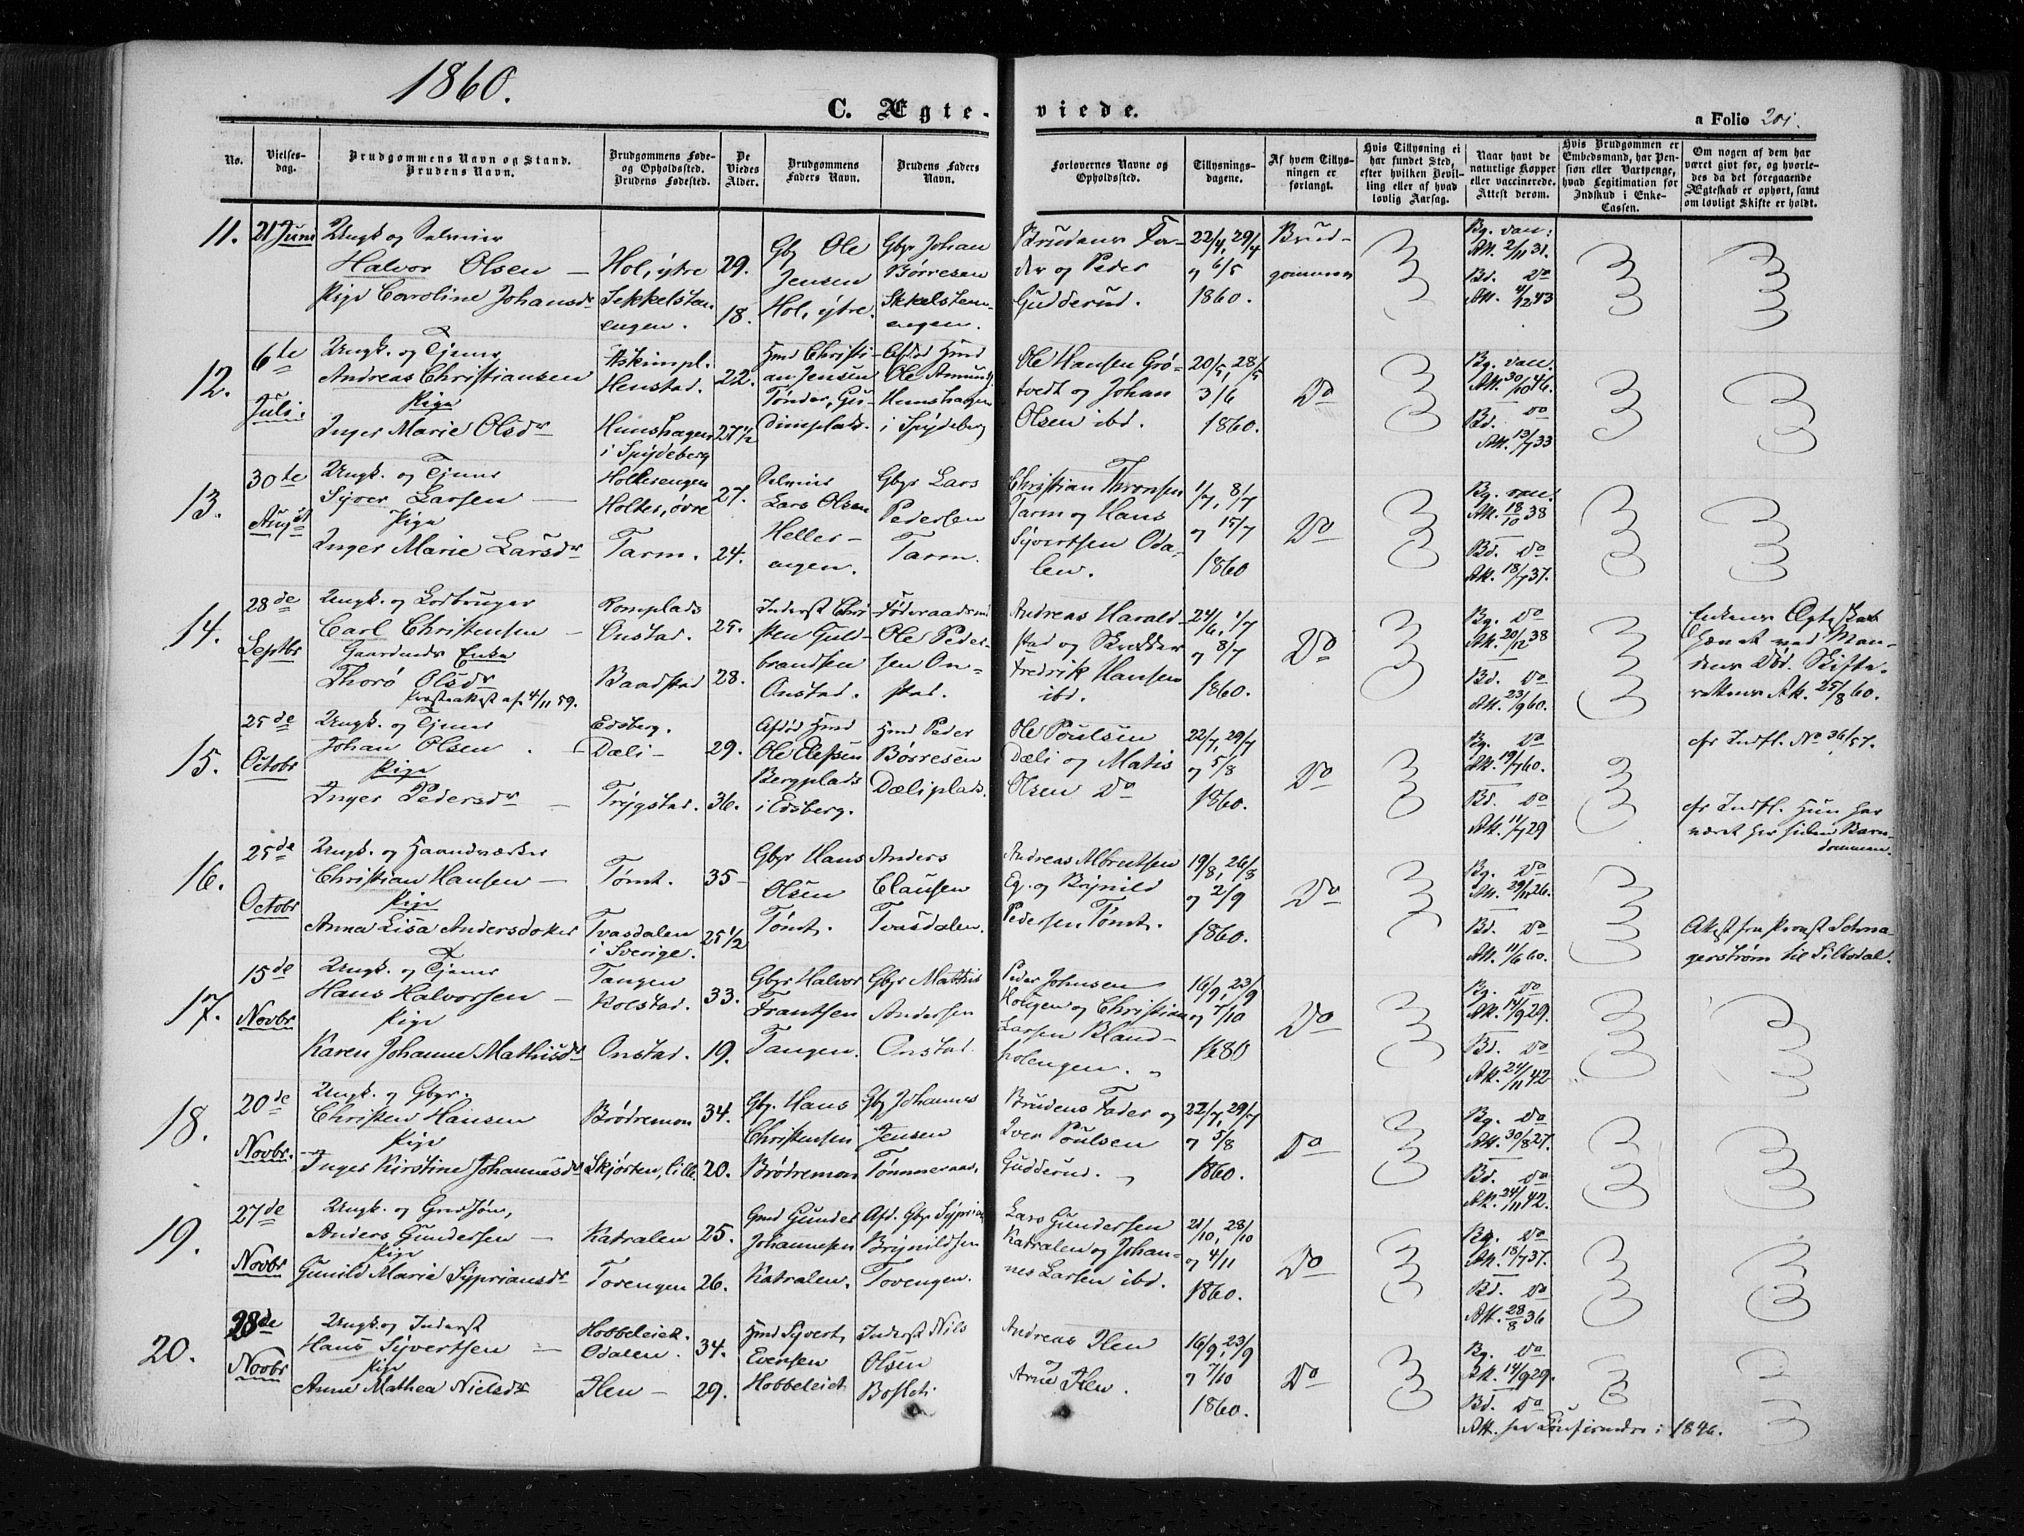 1860.
C. Ægte-
viede.
a Folio 201.
No.
Vielses-
dag.
Brudgommens Navn og Stand.
Brudens Navn.
Brudgommens Føde-
og Opholdssted.
Brudens Fødested.
De
Viedes
Alder.
Brudgommens
Faders Navn.
Brudens Faders
Navn.
Forlovernes Navne og
Opholdssted.
Tillysnings-
dagene.
Af hvem Tillys-
ningen er
forlangt.
Hvis Tillysning ei
har fundet Sted,
efter hvilken Bevil-
ling eller af hvad
lovlig Aarsag.
Naar havt de
naturlige Kopper
eller vaccinerede.
Attest derom.
Hvis Brudgommen er
Embedsmand, har Pen-
sion eller Vartpenge,
hvad Legitimation for
Indskud i Enke-
Cassen.
Om nogen af dem har
været givt før, og hvorle-
des da det foregaaende
Ægteskab er ophørt, samt
om lovligt Skifte er holdt.
11.
21 Juni
Ungk og Selveier
Halvor Olsen
Pige Caroline Johansdr
Hol, ytre
engen.
29.
18.
Gbr Ole
Jensen
Hol, ytre.
Gbr Johan
Børresen
engen.
Brudens Fa-
der og Peder
Gudderud.
22/4, 29/4
og 6/5
1860.
Brud-
gommen
Bg. vac:
Att. 2/11 31.
Bd. do
Att. 4/12 43
12.
6te
Juli.
Ungk. og Tjener
Andreas Christiansen
Pige
Inger Marie Olsdr
Askimpl.
Henstad.
Hunshagen
i Spydeberg
22.
27 1/2
Hmd Christi-
an Jensen
Afdød Hmd
Ole Amunds.
Hunshagen
i Spydeberg
Ole Hansen Grø-
tvedt og Johan
Olsen ibd.
20/5, 28/5
3/6
1860.
Do
Bg. vac.
Att. 30/10 46.
Bd. do
Att. 13/7 33
13.
30te
August
Ungk. og Tjener
Syver Larsen
Pige
Inger Marie Larsdr
Holtes, øvre
Tarm.
27.
24.
Selveier
Lars Olsen
Heller-
engen.
Gbr Lars
Pedersen
Tarm.
Christian Thronsen
Tarm og Hans
Syvertsen Oda-
len.
1/7, 8/7
og 15/7
1860
Do
Bg. vac.
Att. 18/10 38
Bd. do
Att. 18/7 37.
14.
28de
Septbr
Ungk. og Lodbruger
Carl Christensen
Gaardmds Enke
Thorø Olsdr
Præsteattest af 4/11 59.
Romplads
Onstad.
Baadstad
25.
28.
Inderst Chri-
sten Guld-
brandsen
Onstad.
Føderaadsmd
Ole Peder-
sen On-
stad.
Andreas Harald-
stad og Skrædder
Fredrik Hansen
ibd.
24/6, 1/7
og 8/7
1860.
Do
Bg. do
Att. 20/12 38
Bd. do
Att. 23/9 60.
Enkens Ægteskab
hævet ved Man-
dens Død. Skifte-
rettens Att. 25/8 60.
15.
25de
Octobr
Ungk. og Tjener
Johan Olsen
Pige
Inger Pedersdr
Edsberg.
Dæli
Trygstad.
29.
36.
Afdød Hmd
Ole Elefsen
Bergplads
i Edsberg.
Hmd Peder
Børresen
Dæliplads.
Ole Poulsen
Dæli og Matis
Olsen Do
22/7, 29/7
og 5/8
1860.
Do
Bg. do
Att. 19/7 60.
Bd. do
Att. 11/7 29
cfr Indfl. No 36/57.
cfr Indfl. Hun har
været her siden Barn-
dommen.
16.
25de
Octobr
Ungk. og Haandværker
Christian Hansen
Pige
Anna Lisa Andersdoter
Tømt.
Tvasdalen
i Sverige.
35
25 1/2
Gbr Hans
Olsen
Tømt.
Anders
Clausen
Tvasdalen.
Andreas Albretsen
Eg. og Brynild
Pedersen Tømt.
19/8, 26/8
og 2/9
1860.
Do
Bg. do
Att. 29/11 26.
Bd. do
Att. 11/6 60.
Attest fra Provst Schna-
gerstrøm til Silbodal.
17.
15de
Novbr
Ungk. og Tjener
Hans Halvorsen
Pige
Karen Johanne Mathisdr
Tangen
Kolstad.
Onstad.
33.
19.
Gbr Halvor
Frantsen
Tangen.
Gbr Mathis
Andersen
Onstad.
Peder Johnsen
Haugen og Christian
Larsen Bland-
holengen.
16/9, 23/9
og 7/10
1680
Do
Bg. do
Att. 14/9 29.
Bd. do
Att. 24/11 42
18.
20de
Novbr.
Ungk. og Gbr.
Christen Hansen
Pige
Inger Kirstine Johannesdr
Brødremon
Skjørten, lille
34.
20.
Gbr. Hans
Christensen
Brødremon
Gbr Johannes
Jensen
Tømmeraas.
Brudens Fader og
Iver Poulsen
Gudderud.
22/7, 29/7
og 5/8
1860.
Do
Bg. do
Att. 30/8 27.
Bd. do
Att. 24/11 42.
19.
27de
Novbr
Ungk. og Grdsøn,
Anders Gundersen
Pige
Gunild Maria Sypriansdr
Katralen
Tovengen
25.
26.
Gmd Gunder
Johannesen
Katralen.
Afd. Gbr Syprian
Brynildsen
Tovengen.
Lars Gundersen
Katralen og Johan-
nes Larsen ibd.
21/10, 28/10
og 4/11
1860.
Do
Bg. do
Att. 18/7 37.
Bd. do
Att. 28/8 36
20.
28de
Novbr
Ungk. og Inderst
Hans Syvertsen
Pige
Anne Mathea Nielsdr
Hobbeleiet.
Odalen.
Ilen
34.
29.
Hmd Syvert
Evensen
Hobbeleiet
Inderst Nils
Olsen
Andreas Ilen
og
Arne Ilen.
16/9, 23/9
og 7/10
1860.
Do
Bg. do
Att. 14/9 29.
Bd. do
Att. see Confirmerede i 1846.